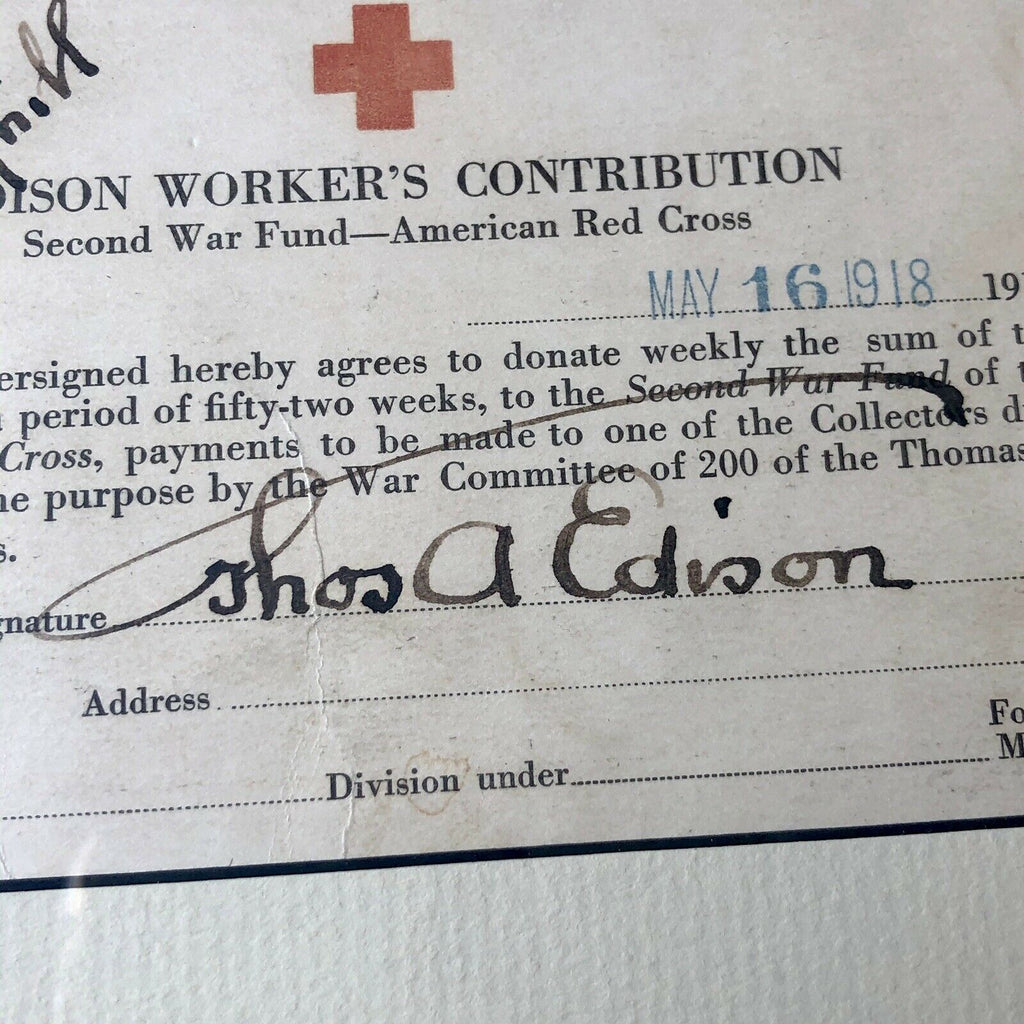 DISON WORKER'S CONTRIBUTION
Second War Fund—American Red Cross
MAY 16 1918 19
ersigned hereby agrees to donate weekly the sum of t
period of fifty-two weeks, to the Second War Fund of t
Cross, payments to be made to one of the Collectors d
he purpose by the War Committee of 200 of the Thomas
s.
gnature Thos A Edison
Address
Fo
Division under M